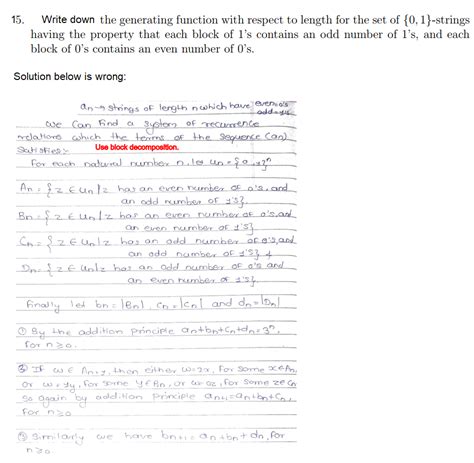 15. Write down the generating function with respect to length for the set of {0, 1}-strings
having the property that each block of 1's contains an odd number of 1's, and each
block of 0's contains an even number of 0's.
Solution below is wrong:
an → strings of length n which have even 0's
odd 1's
we can find a system of recurrence
relations which the terms of the sequence (an)
satisfies:-
Use block decomposition.
For each natural number n, let Un = {0,
An = {z ∈ Un | z has an even number of 0's, and
an odd number of 1's}.
Bn = {z ∈ Un | z has an even number of 0's, and
an even number of 1's}
Cn = {z ∈ Un | z has an odd number of 0's, and
an odd number of 1's} &
Dn = {z ∈ Un | z has an odd number of 0's and
an even number of 1's}.
Finally let bn = |Bn|, cn = |Cn| and dn = |Dn|
① By the addition principle an+bn+cn+dn = 3^n,
for n ≥ 0.
② If w ∈ An+1, then either w = 2x, for some x ∈ An,
or w = 1y, for some y ∈ Bn, or w = 0z, for some z ∈ Cn
so again by addition principle an+1 = an+bn+cn,
for n ≥ 0
③ Similarly we have bn+1 = an+bn+dn, for
n ≥ 0.